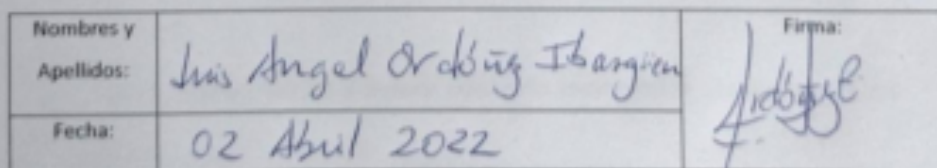 Nombres y Apellidos: Luis Angel Ordóñez Ibargüen
Firma:
Fecha: 02 Abril 2022